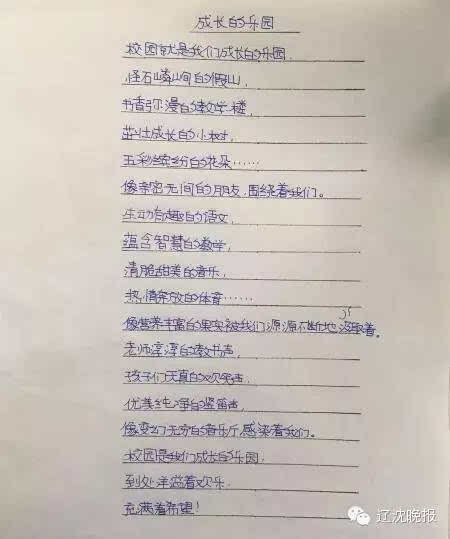 成长的乐园
校园就是我们成长的乐园,
怪石嶙峋的假山,
书香弥漫的教学楼,
茁壮成长的小树,
五彩缤纷的花朵……
像亲密无间的朋友,围绕着我们。
生动有趣的语文,
蕴含智慧的数学,
清脆甜美的音乐,
热情奔放的体育……
像营养丰富的果实被我们源源不断地汲取着。
老师谆谆的教书声,
孩子们天真的欢笑声,
优美纯净的竖笛声,
像变幻无穷的音乐厅感染着我们。
校园是我们成长的乐园,
到处洋溢着欢乐,
充满着希望!
辽沈晚报